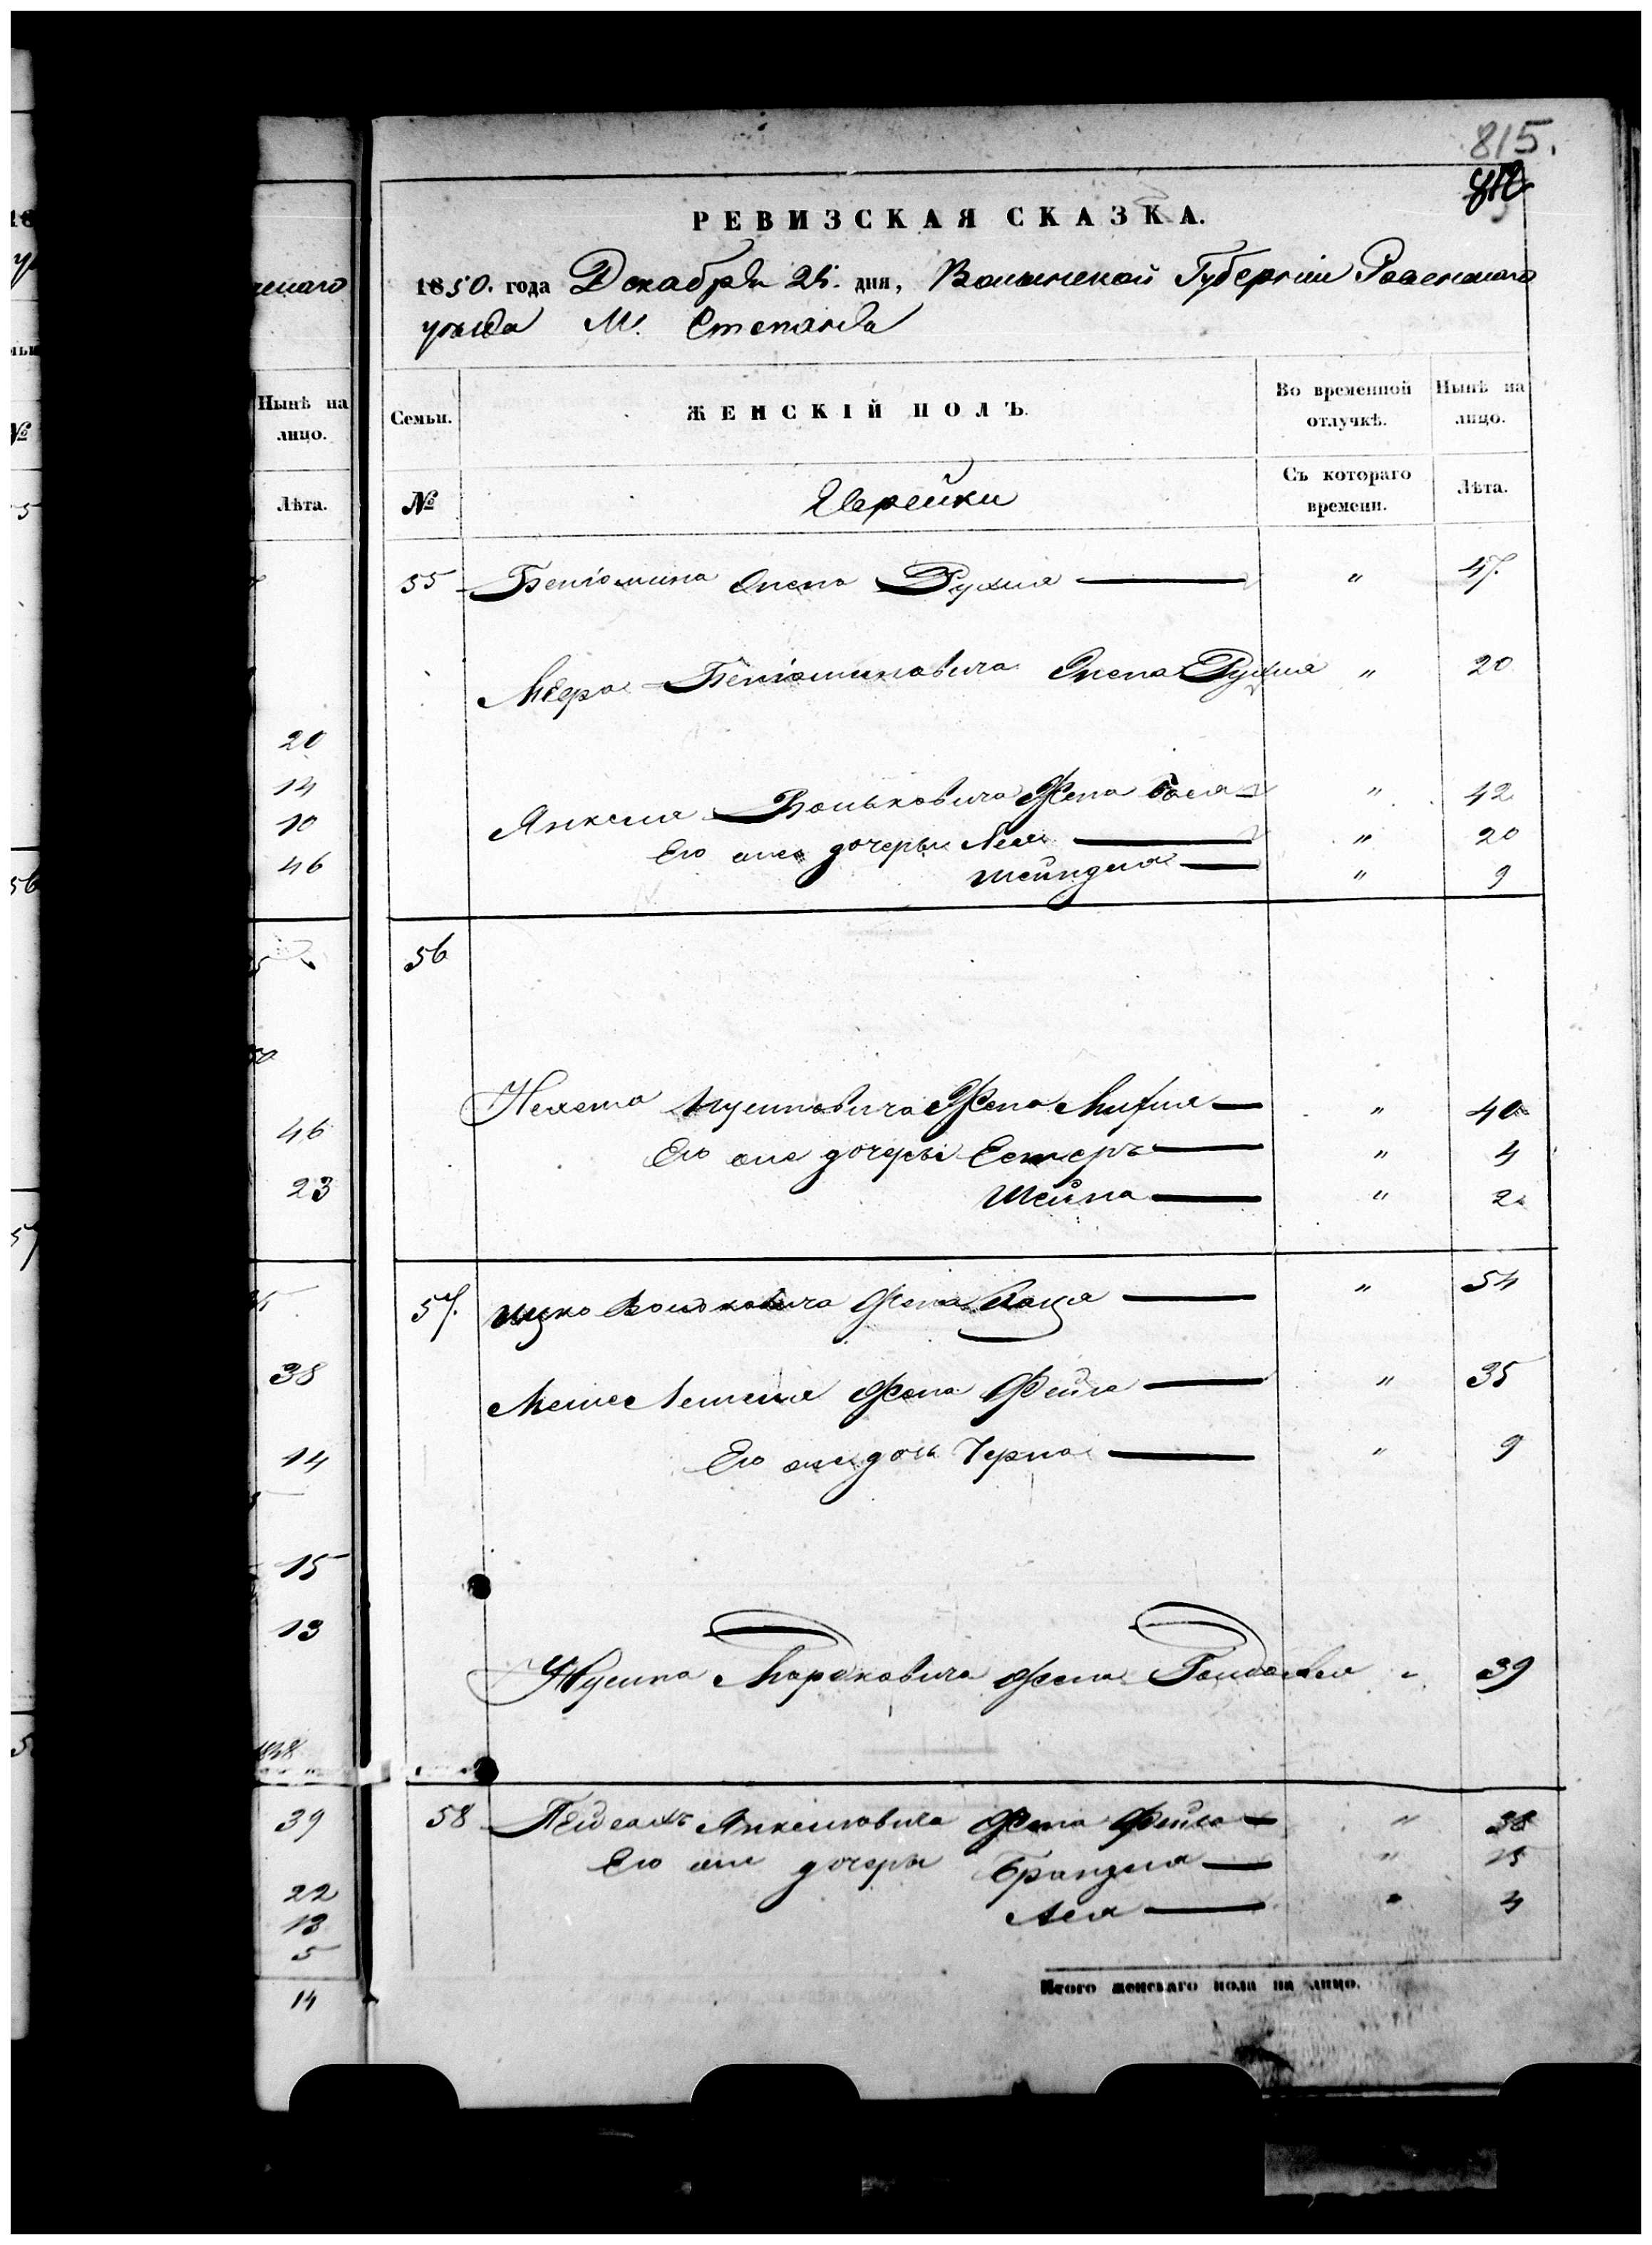 815.
812
РЕВИЗСКАЯ СКАЗКА.
1850. года Декабря 25. дня, Волынской Губерніи Ровенскаго
уѣзда М. Степаня
Нынѣ на лицо.
Лѣта.
Семьи.
ЖЕНСКІЙ ПОЛЪ.
Во временной отлучкѣ.
Нынѣ на лицо.
№
Еврейки
Съ котораго времени.
Лѣта.
55 Беніомина Жена Рухля " 47.
Меера Беніоминовича Жена Рухля " 20
20
14
Янкеля Вольковича Жена Бася " 42
10
Его же дочеры Лея " 20
46
Шейндля " 9
56
Мушковича Жена " 40
46
Его же дочеры Естеръ " 4
23
Шейна " 2
57. Ицко Вольковича Жена " 54
38
Жена Фейга " 35
14
Его же дочь Черна " 9
15
13
Марковича Жена 39
39
58 Янкелевича Жена Фейга " 38
Его же дочеры " 15
22
13
Лея " 4
5
14
Итого женскаго пола на лицо.